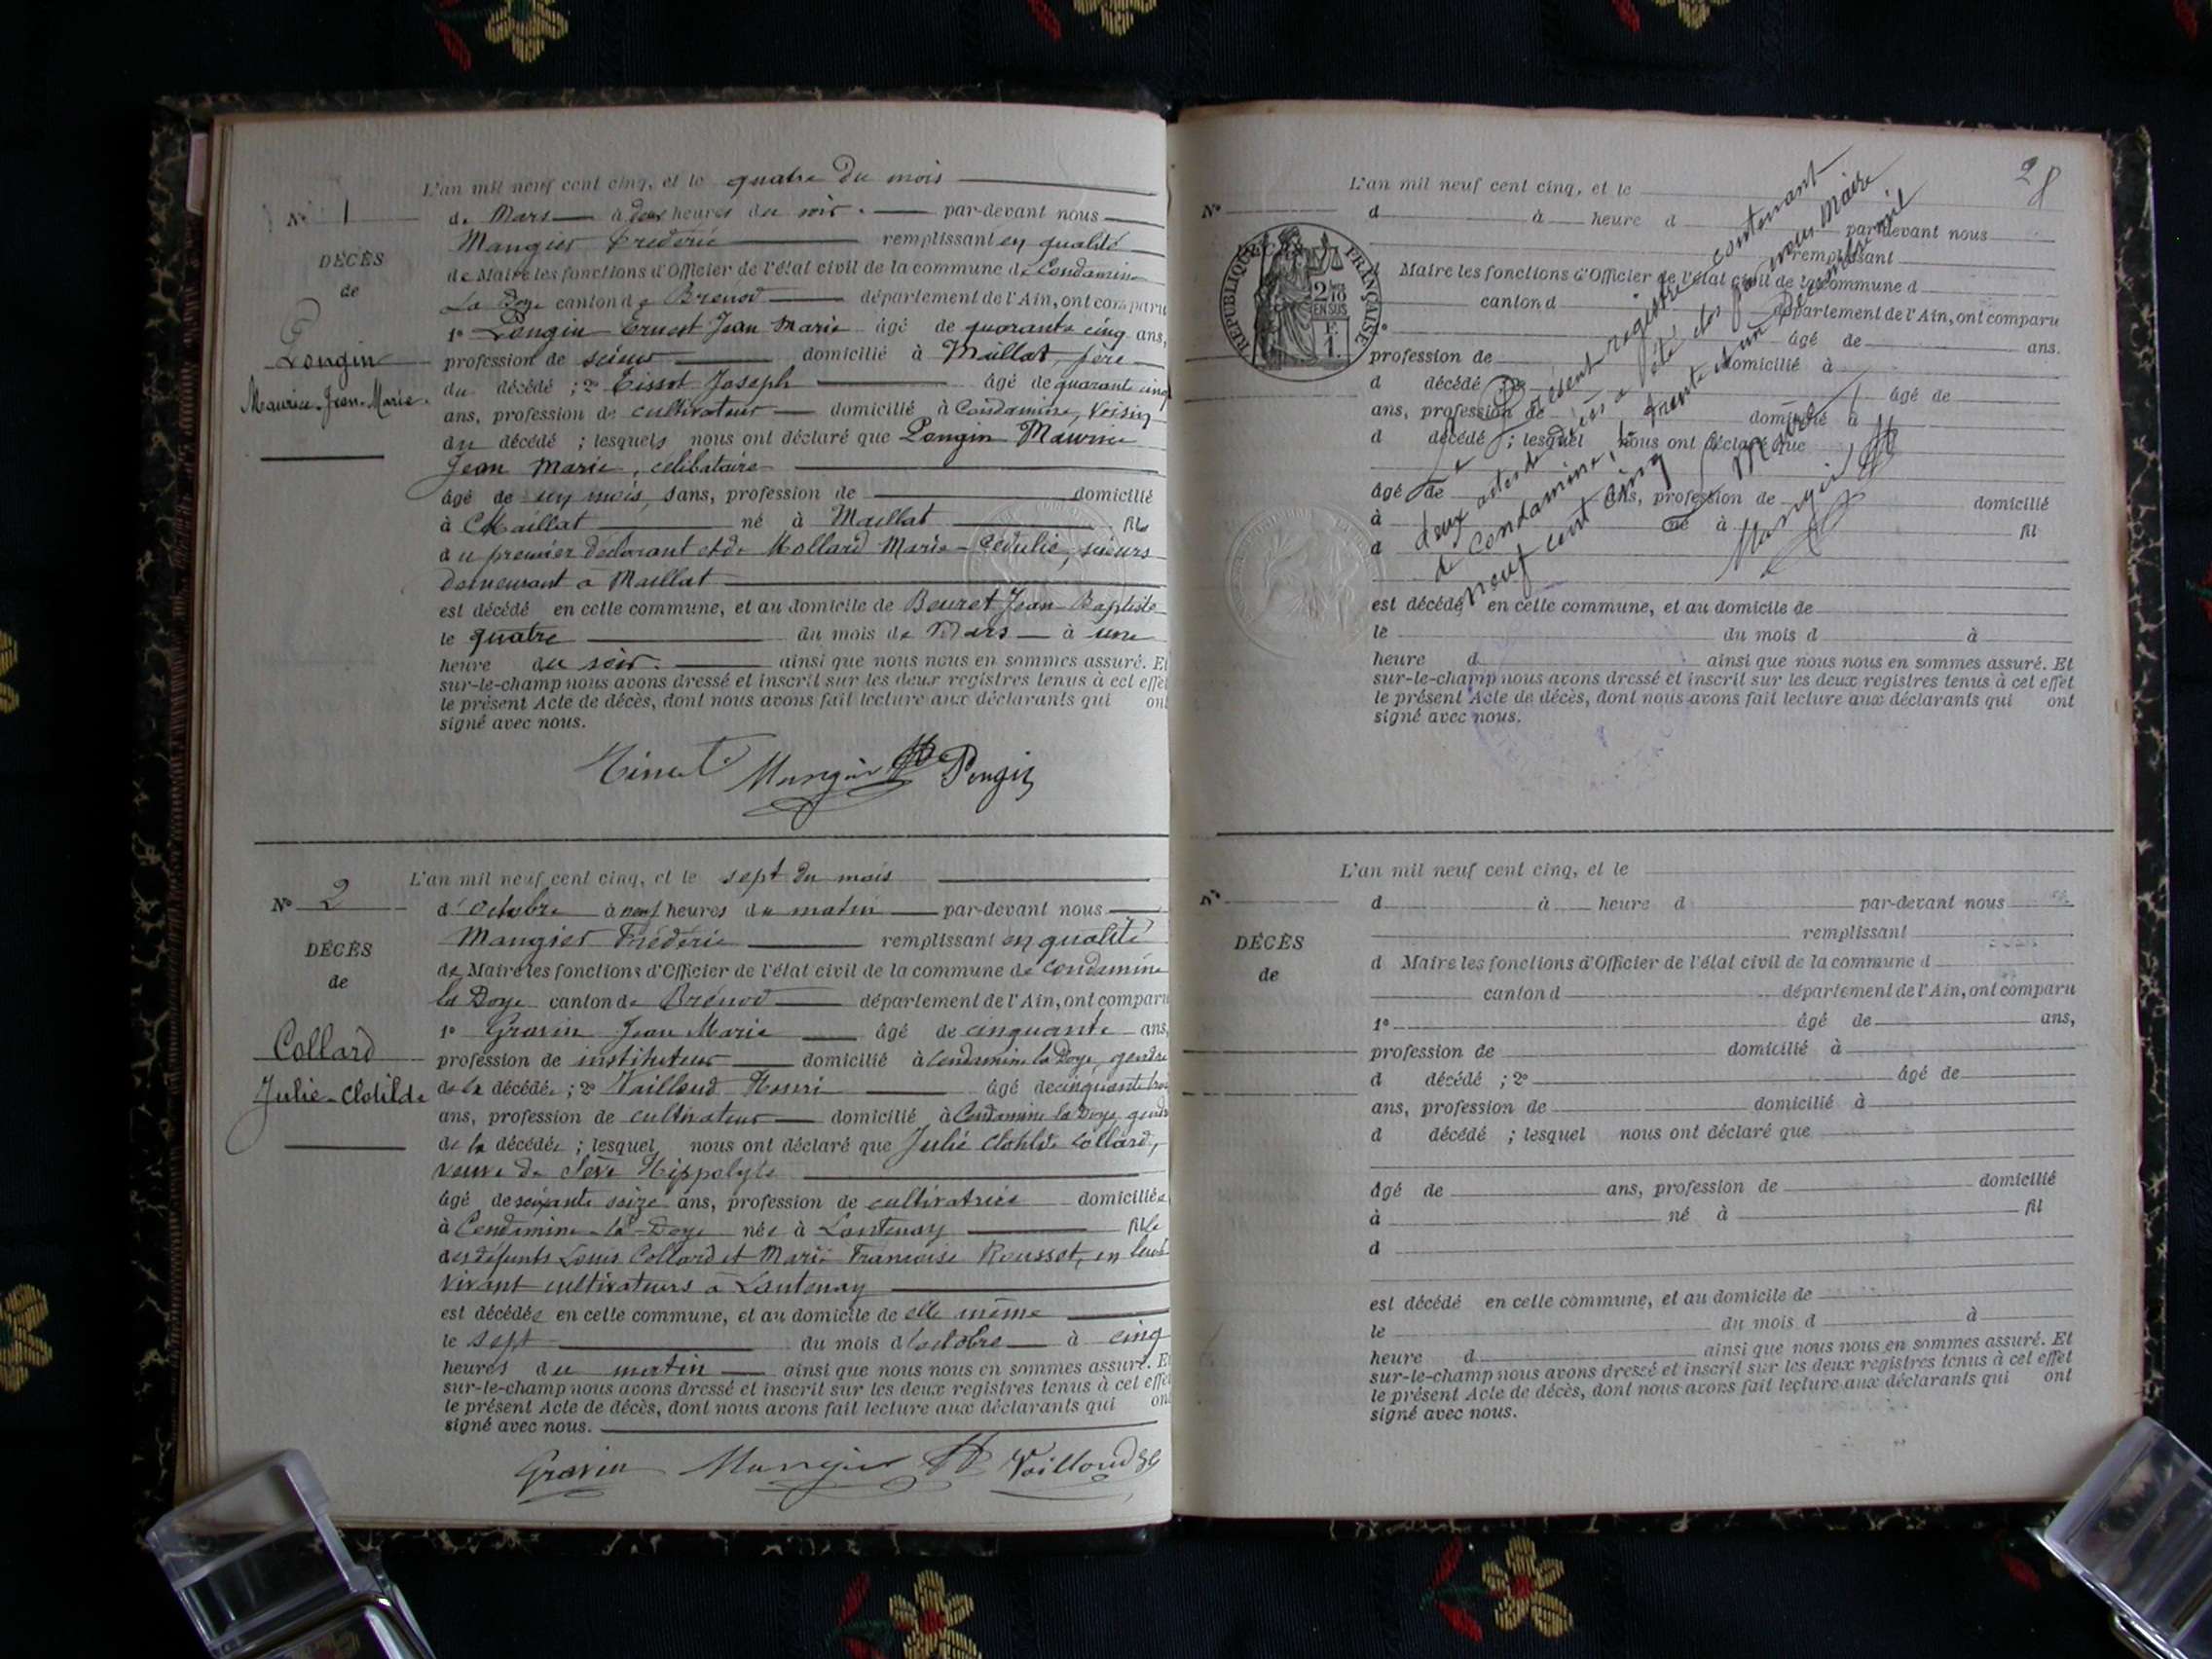 L'an mil neuf cent cinq, et le quatre du mois
N° 1
de Mars à deux heures du soir. par-devant nous
Mangier Frédéric remplissant en qualité
DÉCÈS
de Maire les fonctions d'Officier de l'état civil de la commune de Condamine
de
La Doye canton de Brénod département de l'Ain, ont comparu
1° Pongin Ernest Jean Marie âgé de quarante cinq ans,
Pongin
profession de scieur domicilié à Maillat, père
Maurice-Jean-Marie.
du décédé ; 2° Tissot Joseph âgé de quarante cinq
ans, profession de cultivateur domicilié à Condamine, voisin
du décédé ; lesquels nous ont déclaré que Pongin Maurice
Jean Marie, célibataire
âgé de mois, sans, profession de domicilié
à Maillat né à Maillat fils
du premier déclarant et de Mollard Marie-
demeurant à Maillat
est décédé en cette commune, et au domicile de Beuret Jean Baptiste
le quatre du mois de Mars à une
heure du soir. ainsi que nous nous en sommes assuré. Et
sur-le-champ nous avons dressé et inscrit sur les deux registres tenus à cet effet
le présent Acte de décès, dont nous avons fait lecture aux déclarants qui ont
signé avec nous.
Mangier Pongin
L'an mil neuf cent cinq, et le sept du mois
N° 2
d'Octobre à neuf heures du matin par-devant nous
Mangier Frédéric remplissant en qualité
DÉCÈS
de Maire les fonctions d'Officier de l'état civil de la commune de Condamine
de
la Doye canton de Brénod département de l'Ain, ont comparu
1° Gravin Jean Marie âgé de cinquante ans,
Collard
profession de instituteur domicilié à Condamine la Doye, gendre
Julie-Clotilde
de la décédée ; 2° Vailloud Henri âgé de cinquante trois
ans, profession de cultivateur domicilié à Condamine la Doye gendre
de la décédée ; lesquel nous ont déclaré que Julie Clotilde Collard,
veuve de Sève Hippolyte
âgé de soixante seize ans, profession de cultivatrice domiciliée
à Condamine-la-Doye née à Lantenay fille
des défunts Louis Collard et Marie Françoise Rousset, en leur
vivant cultivateurs à Lantenay
est décédée en cette commune, et au domicile de elle même
le sept du mois d'octobre à cinq
heures du matin ainsi que nous nous en sommes assuré. Et
sur-le-champ nous avons dressé et inscrit sur les deux registres tenus à cet effet
le présent Acte de décès, dont nous avons fait lecture aux déclarants qui ont
signé avec nous.
Gravin Mangier Vailloud
28
L'an mil neuf cent cinq, et le
N°
d à heure d par-devant nous
remplissant
d Maire les fonctions d'Officier de l'état civil de la commune d
canton d département de l'Ain, ont comparu
1° âgé de ans.
profession de domicilié à
d décédé ; 2° âgé de
ans, profession de domicilié à
d décédé ; lesquel nous ont déclaré que
âgé de ans, profession de domicilié
à né à fil
d
est décédé en cette commune, et au domicile de
le du mois d à
heure d ainsi que nous nous en sommes assuré. Et
sur-le-champ nous avons dressé et inscrit sur les deux registres tenus à cet effet
le présent Acte de décès, dont nous avons fait lecture aux déclarants qui ont
signé avec nous.
RÉPUBLIQUE FRANÇAISE
2/10
EN SUS
F.
1.
Le Présent registre contenant
deux actes de décès a été clos par nous Maire
de Condamine, le trente et un Décembre mil
neuf cent cinq
Le Maire
Mangier
L'an mil neuf cent cinq, et le
N°
d à heure d par-devant nous
remplissant
DÉCÈS
d Maire les fonctions d'Officier de l'état civil de la commune d
de
canton d département de l'Ain, ont comparu
1° âgé de ans,
profession de domicilié à
d décédé ; 2° âgé de
ans, profession de domicilié à
d décédé ; lesquel nous ont déclaré que
âgé de ans, profession de domicilié
à né à fil
d
est décédé en cette commune, et au domicile de
le du mois d à
heure d ainsi que nous nous en sommes assuré. Et
sur-le-champ nous avons dressé et inscrit sur les deux registres tenus à cet effet
le présent Acte de décès, dont nous avons fait lecture aux déclarants qui ont
signé avec nous.